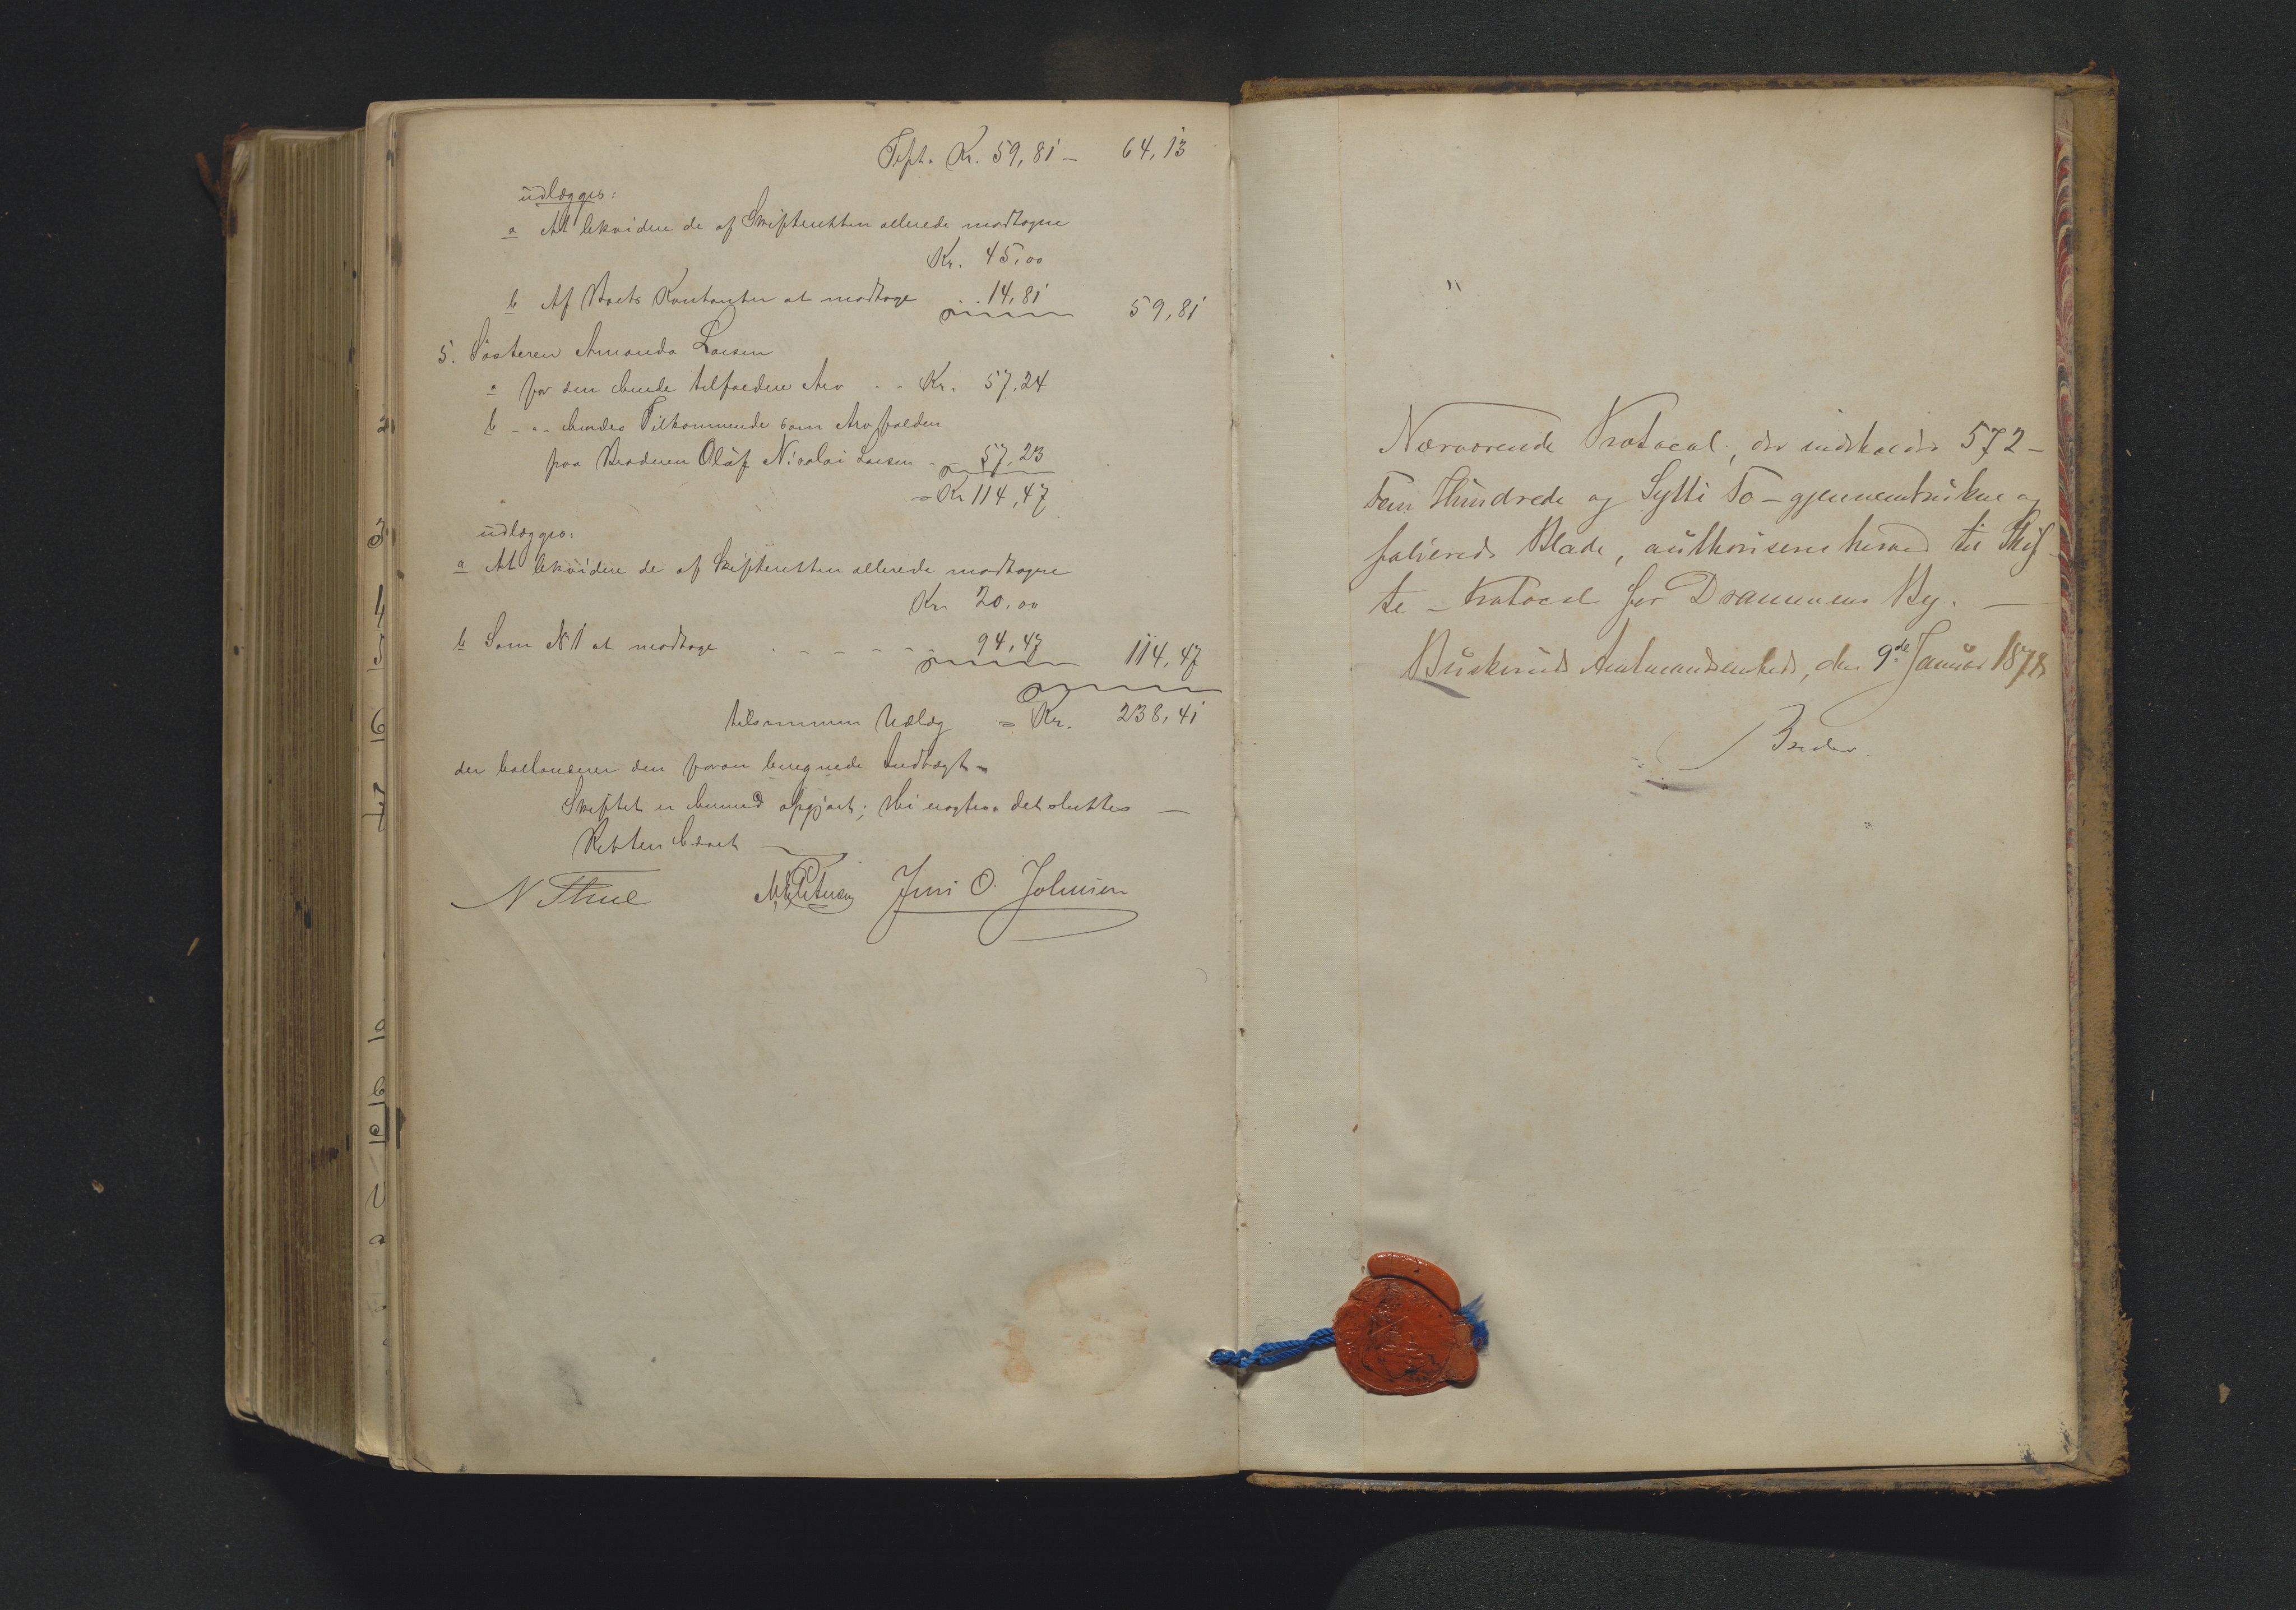 Tpt. Kr. 59,81 – 64,13
udlægges:
a At likvidere de af Skifteretten allerede modtagne
Kr. 45,00
b Af Boets Kontanter at modtage .. 14,81 59,81
5. Søsteren Amanda Larsen
a for den hende tilfaldne Arv .. Kr. 57,24
b - „ - hendes Tilkommende som Arv falden
paa Broderen Olaf Nicolai Larsen - 57,23
= Kr 114,47
udlægges:
a At likvidere de af Skifteretten allerede modtagne
Kr. 20,00
b Som № 1 at modtage - - - - - 94,47 114,47
tilsammen Udlæg = Kr. 238,41
der ballanserer den foran beregnede Indtægt –
Skiftet er hermed opgjort; det sluttes –
Retten hævet
N Thue Jens O. Johnsen
Nærværende Protocol, der indeholder 572 –
Fem Hundrede og Sytti To – gjennemtrukne og
folierede Blade, authoriseres herved til Skif-
te – Protocol for Drammens By. –
Buskeruds Amtmandsembede, den 9de Januar 1878
2
3
4
5
6
7